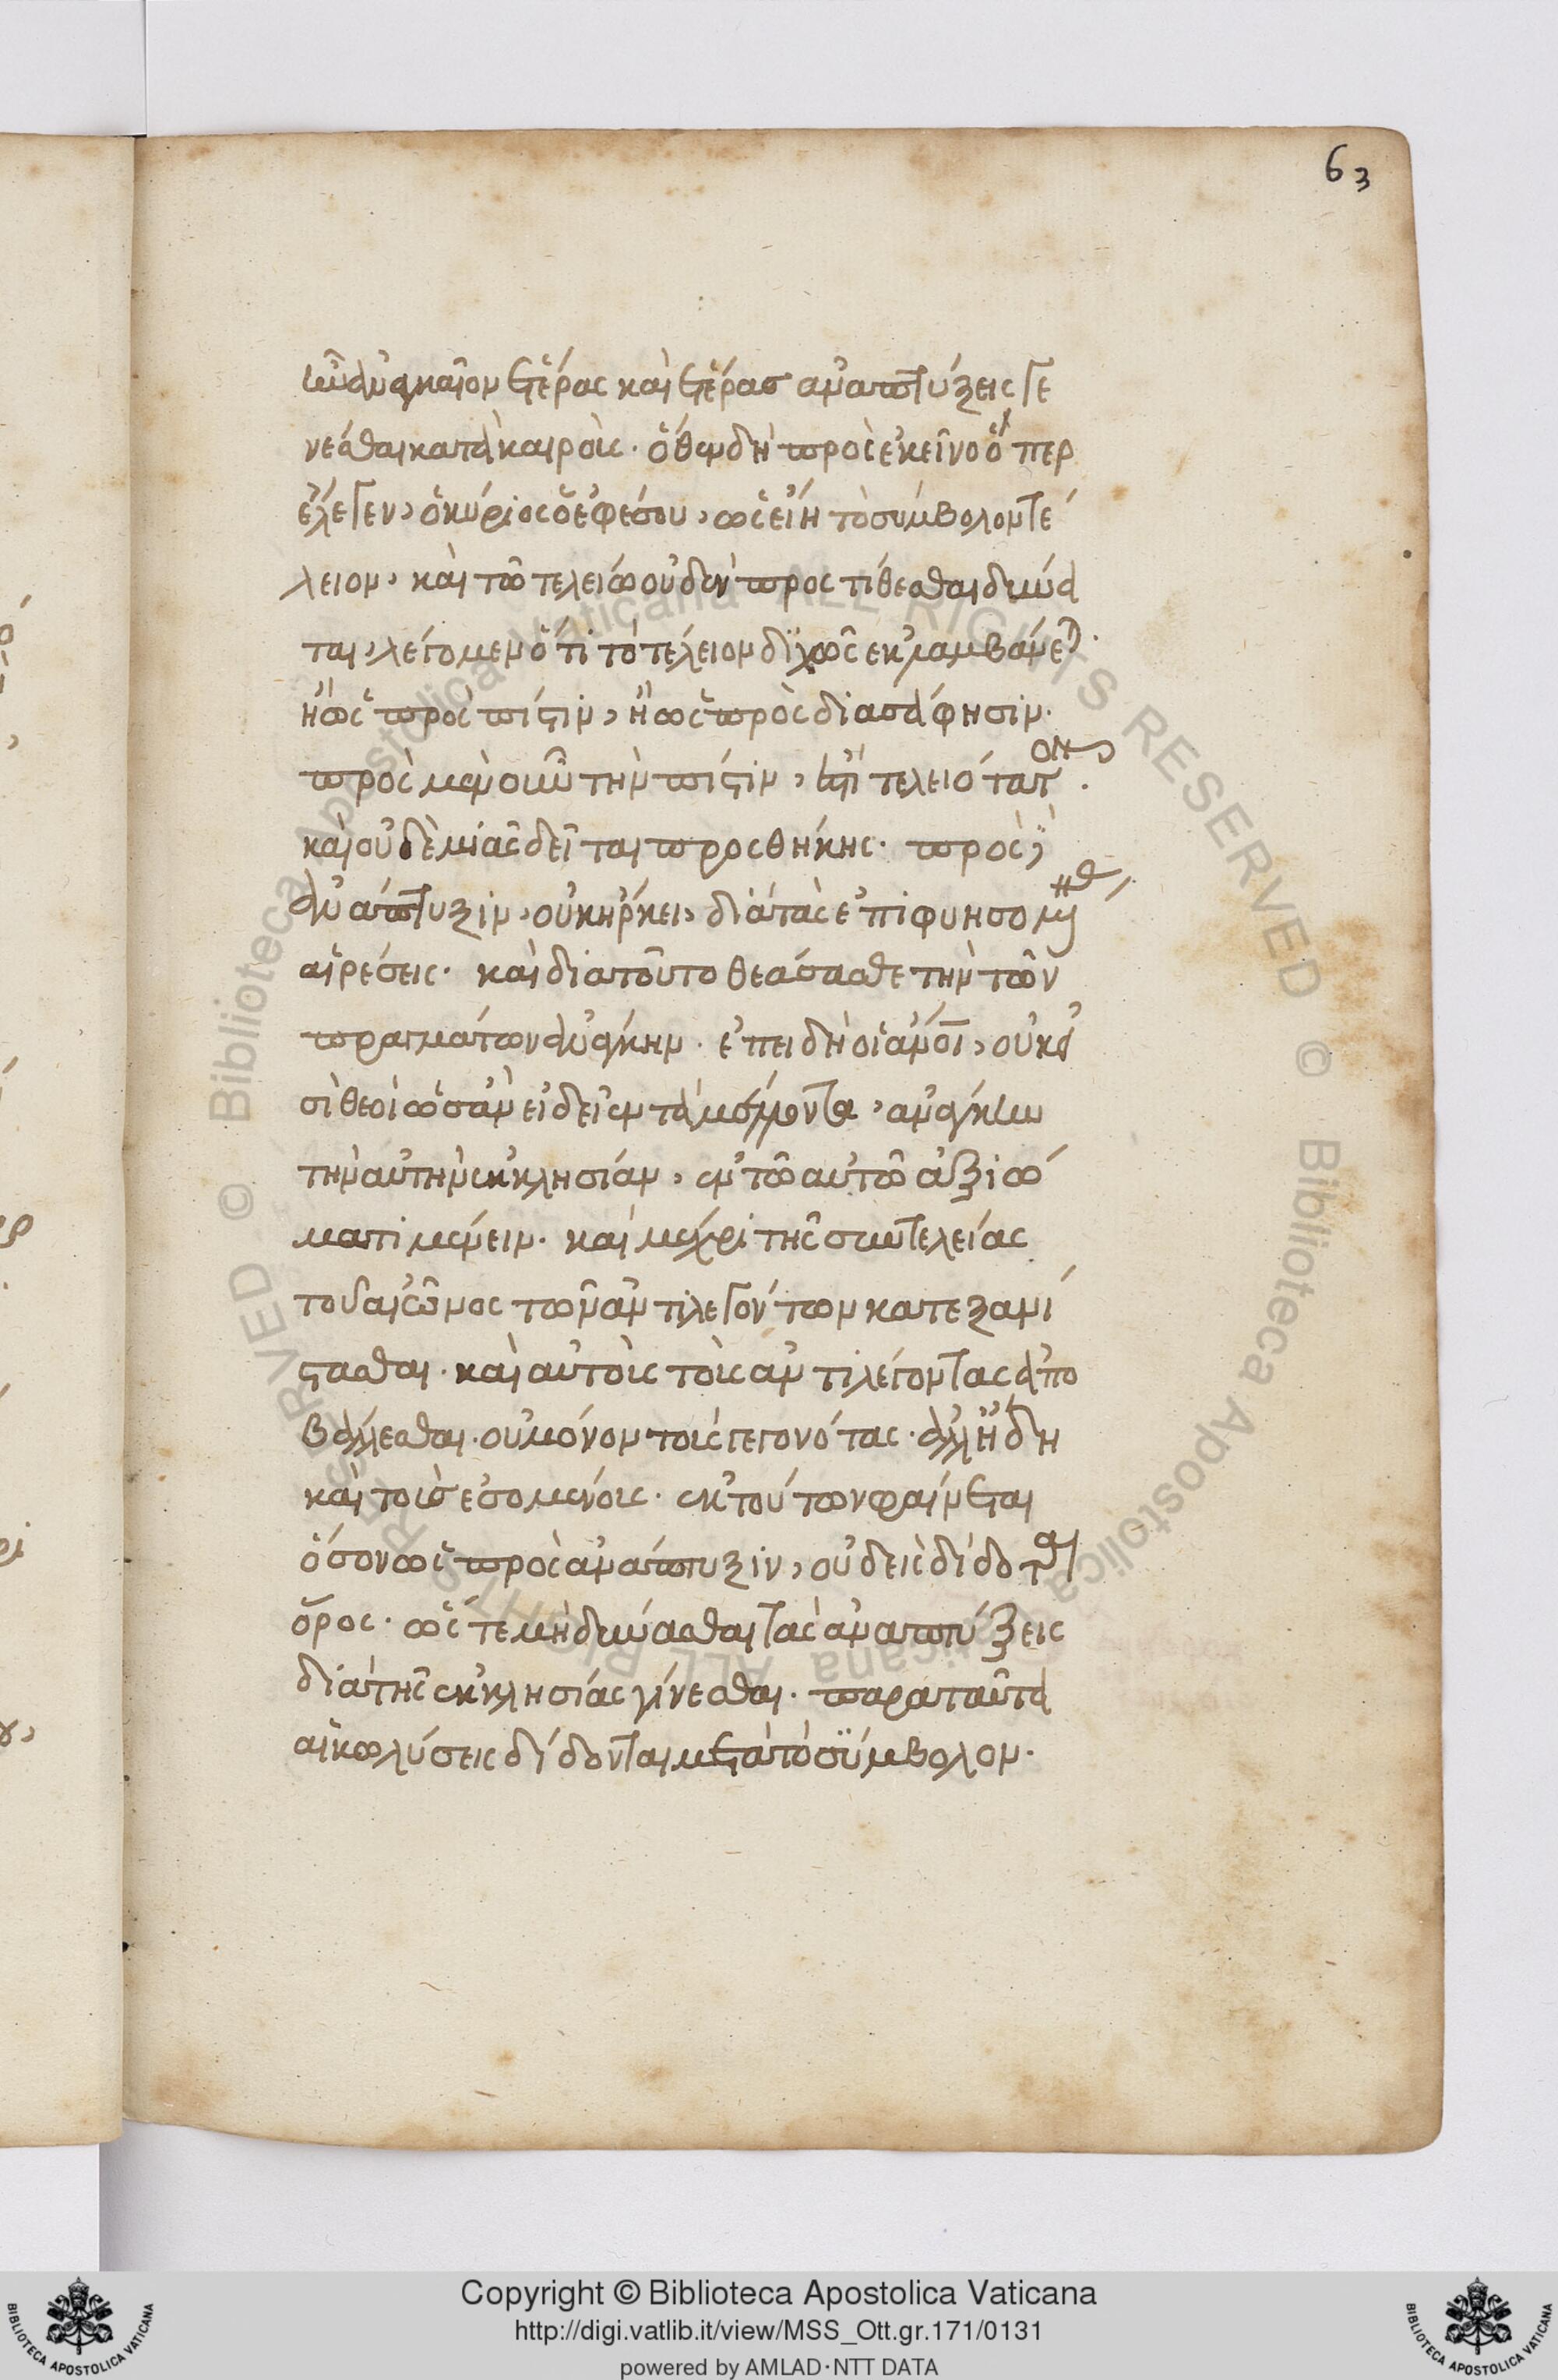 63
ἦν ἀναγκαῖον ἑτέρας καὶ ἑτέρας ἀναπτύξεις γε
νέσθαι κατὰ καιροὺς· ὅθεν δὴ πρὸς ἐκεῖνο ὅ περ
ἔλεγεν, ὁ κύριος ὁ ἐφέσου, ὡς εἴη τὸ σύμβολον τέ
λειον, καὶ τῶ τελείω οὐδὲν προς τίθεσθαι δύνα
ται, λέγομεν ὅτι τὸ τέλειον διχῶς ἐκλαμβάνεται·
ἢ ὡς πρὸς πίστιν, ἢ ὡς πρὸς διασάφησιν·
πρὸς μὲν οὖν τὴν πίστιν, ἐστὶ τελειότατον·
καὶ οὐδὲ μιᾶς δεῖται προσθήκης· πρὸς δὲ
ἀνάπτυξιν, οὐκ ἤρκει, διὰ τὰς ἐπιφυησομένας
αἱρέσεις· καὶ διατοῦτο θεάσασθε τὴν τῶν
πραγμάτων ἀνάγκην· ἐπειδὴ οἱ ἄνοι, οὐκ εἰ
σὶ θεοὶ ὡς ἂν εἰδεῖεν τὰ μέλλοντα, ἀνάγκη
τὴν αὐτὴν ἐκκλησίαν, ἐν τῶ αὐτῶ ἀξιώ
ματι μένειν· καὶ μέχρι τῆς συντελείας
τοῦ αἰῶνος τῶν ἀντιλεγόντων κατεξανί
στασθαι· καὶ αὐτοὺς τοὺς ἀντιλέγοντας ἀπο
βάλλεσθαι· οὐ μόνον τοὺς γεγονότας· ἀλλ' ἤδη
καὶ τοὺς ἐσομένους· ἐκ τούτων φαίνεται
ὅσον ὡς πρὸς ἀνάπτυξιν, οὐδεὶς δίδοται
ὅρος· ὥς τε μὴ δύνασθαι τὰς ἀναπτύξεις
διὰ τῆς ἐκκλησίας γίνεσθαι· παρα ταῦτα
αἱ κωλύσεις δίδονται μετὰ τὸ σύμβολον·
Copyright © Biblioteca Apostolica Vaticana
http://digi.vatlib.it/view/MSS_Ott.gr.171/0131
powered by AMLAD·NTT DATA